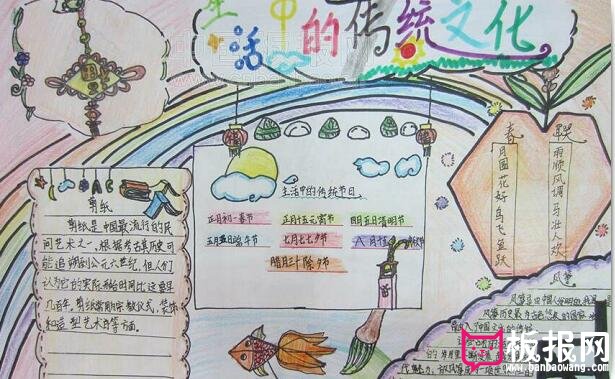 生活中的传统文化
剪纸
剪纸是中国最流行的民
间艺术之一,根据考古其历史可
能追朔到公元六世纪,但人们
认为它的实际始时间比这要早
几百年,剪纸常用宗教仪式,装饰
和造型艺术等方面。
生活中的传统节日
正月初一春节
正月十五元宵节
四五日清明节
五月五日端午节
七月七七夕节
八月
腊月三十除夕节
春联
雨顺风调马壮人欢
月圆花好鸟飞鱼跃
风筝
板报网
www.banbaowang.com